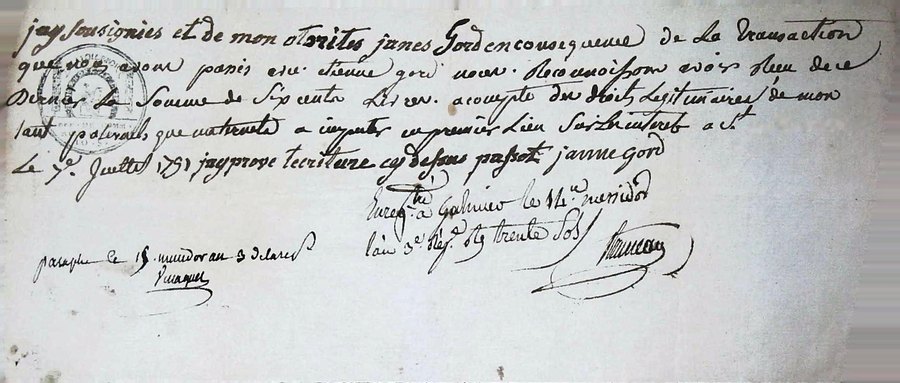 jay sousignies et de mon otorites janes Gord en consequence de La transaction
que nous avons passés avec etienne gord nous Reconnoissons avoir Reçu de ce
Dernier La Somme de Six cents Livres acompte des droits Legitimaires de mon
tant paternels que maternels a imputer en premier Lieu Sur les interets a St
Le 7e. Juillet 1791 japrove lecriture cy desous passot janne gord
Enregtré à le 14e. messidor
l'an 3e. Rep. Rç trente Sols
paraphe le 15 messidor an 3 de la rep